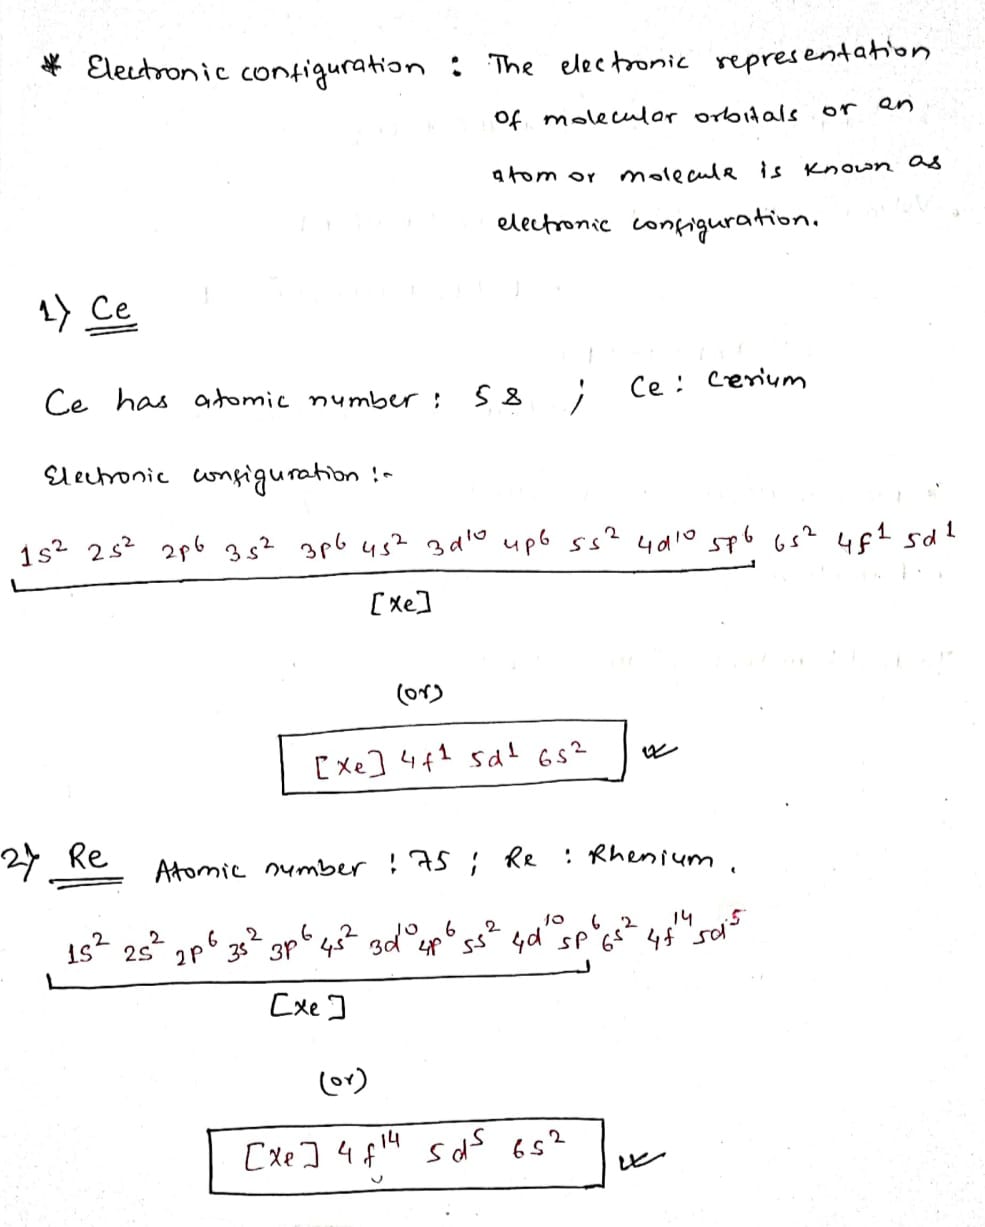 * Electronic configuration : The electronic representation
of molecular orbitals or an
atom or molecule is known as
electronic configuration.
1) Ce
Ce has atomic number : 58 ; Ce : cerium
Electronic configuration :-
1s² 2s² 2p⁶ 3s² 3p⁶ 4s² 3d¹⁰ 4p⁶ 5s² 4d¹⁰ 5p⁶ 6s² 4f¹ 5d¹
[Xe]
(or)
[Xe] 4f¹ 5d¹ 6s²
2) Re Atomic number : 75 ; Re : Rhenium.
1s² 2s² 2p⁶ 3s² 3p⁶ 4s² 3d¹⁰ 4p⁶ 5s² 4d¹⁰ 5p⁶ 6s² 4f¹⁴ 5d⁵
[Xe]
(or)
[Xe] 4f¹⁴ 5d⁵ 6s²